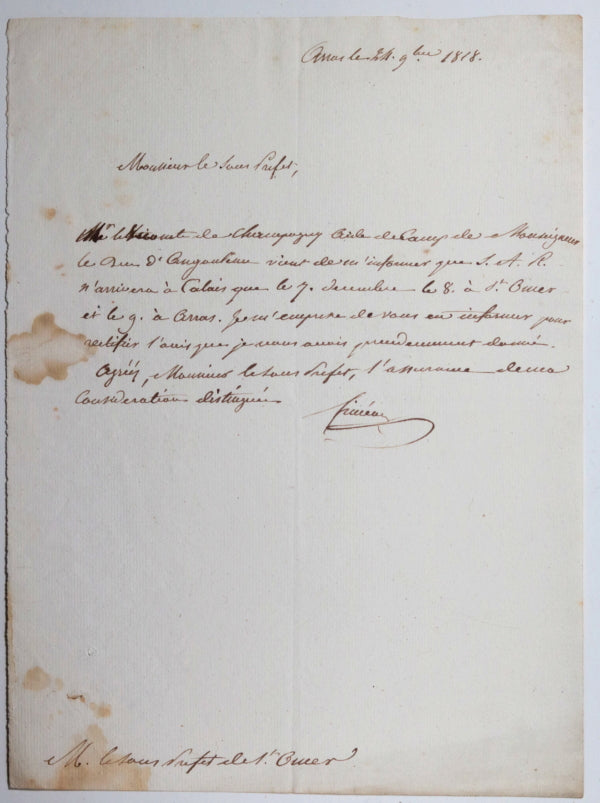 Arras le 24. 9bre 1818.
Monsieur le Sous Préfet,
Mr le Vicomte de Champagny Aide de Camp de Monseigneur
le Duc d'Angoulême vient de m'informer que S. A. R.
n'arrivera à Calais que le 7. decembre le 8. à St Omer
et le 9. à Arras. Je m'empresse de vous en informer pour
rectifier l'avis que je vous avois précédemment donné.
Agréez, Monsieur le Sous Préfet, l'assurance de ma
Considération distinguée
Siméon
M. le Sous Préfet de St Omer.